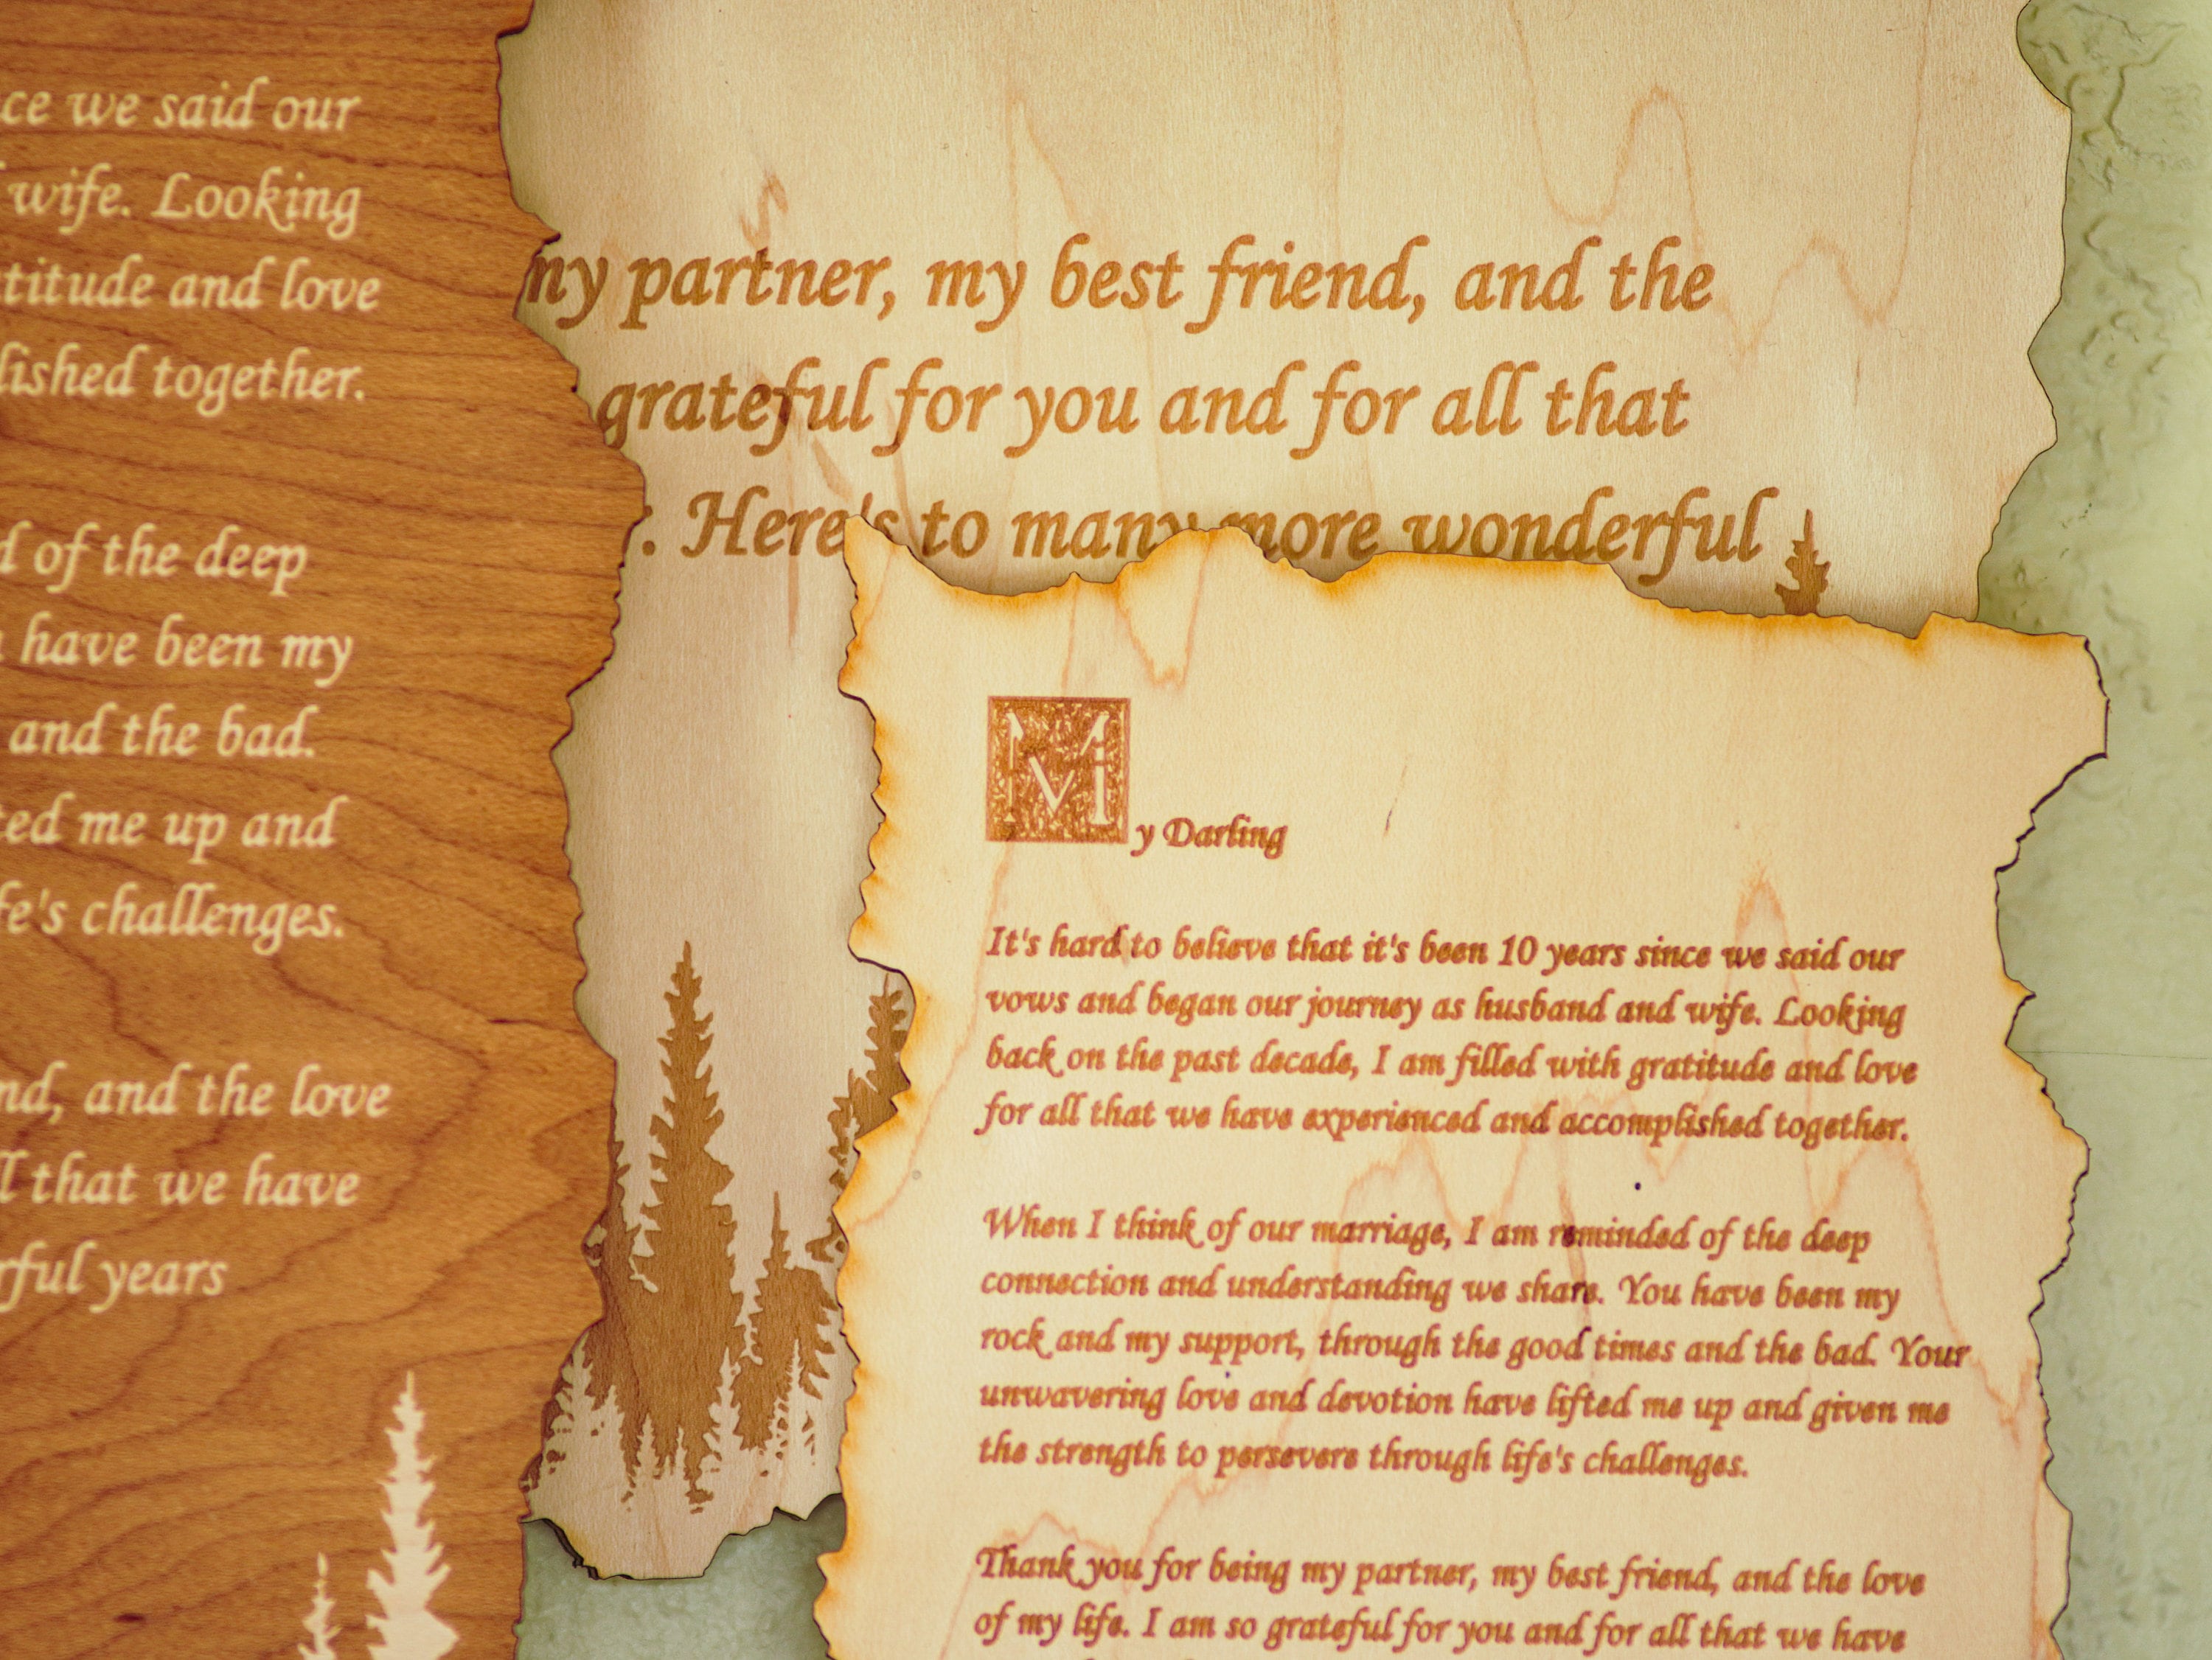 ce we said our
wife. Looking
titude and love
lished together.
d of the deep
have been my
and the bad.
ted me up and
fe's challenges.
nd, and the love
ll that we have
rful years
my partner, my best friend, and the
grateful for you and for all that
. Here's to many more wonderful
My Darling
It's hard to believe that it's been 10 years since we said our
vows and began our journey as husband and wife. Looking
back on the past decade, I am filled with gratitude and love
for all that we have experienced and accomplished together.
When I think of our marriage, I am reminded of the deep
connection and understanding we share. You have been my
rock and my support, through the good times and the bad. Your
unwavering love and devotion have lifted me up and given me
the strength to persevere through life's challenges.
Thank you for being my partner, my best friend, and the love
of my life. I am so grateful for you and for all that we have